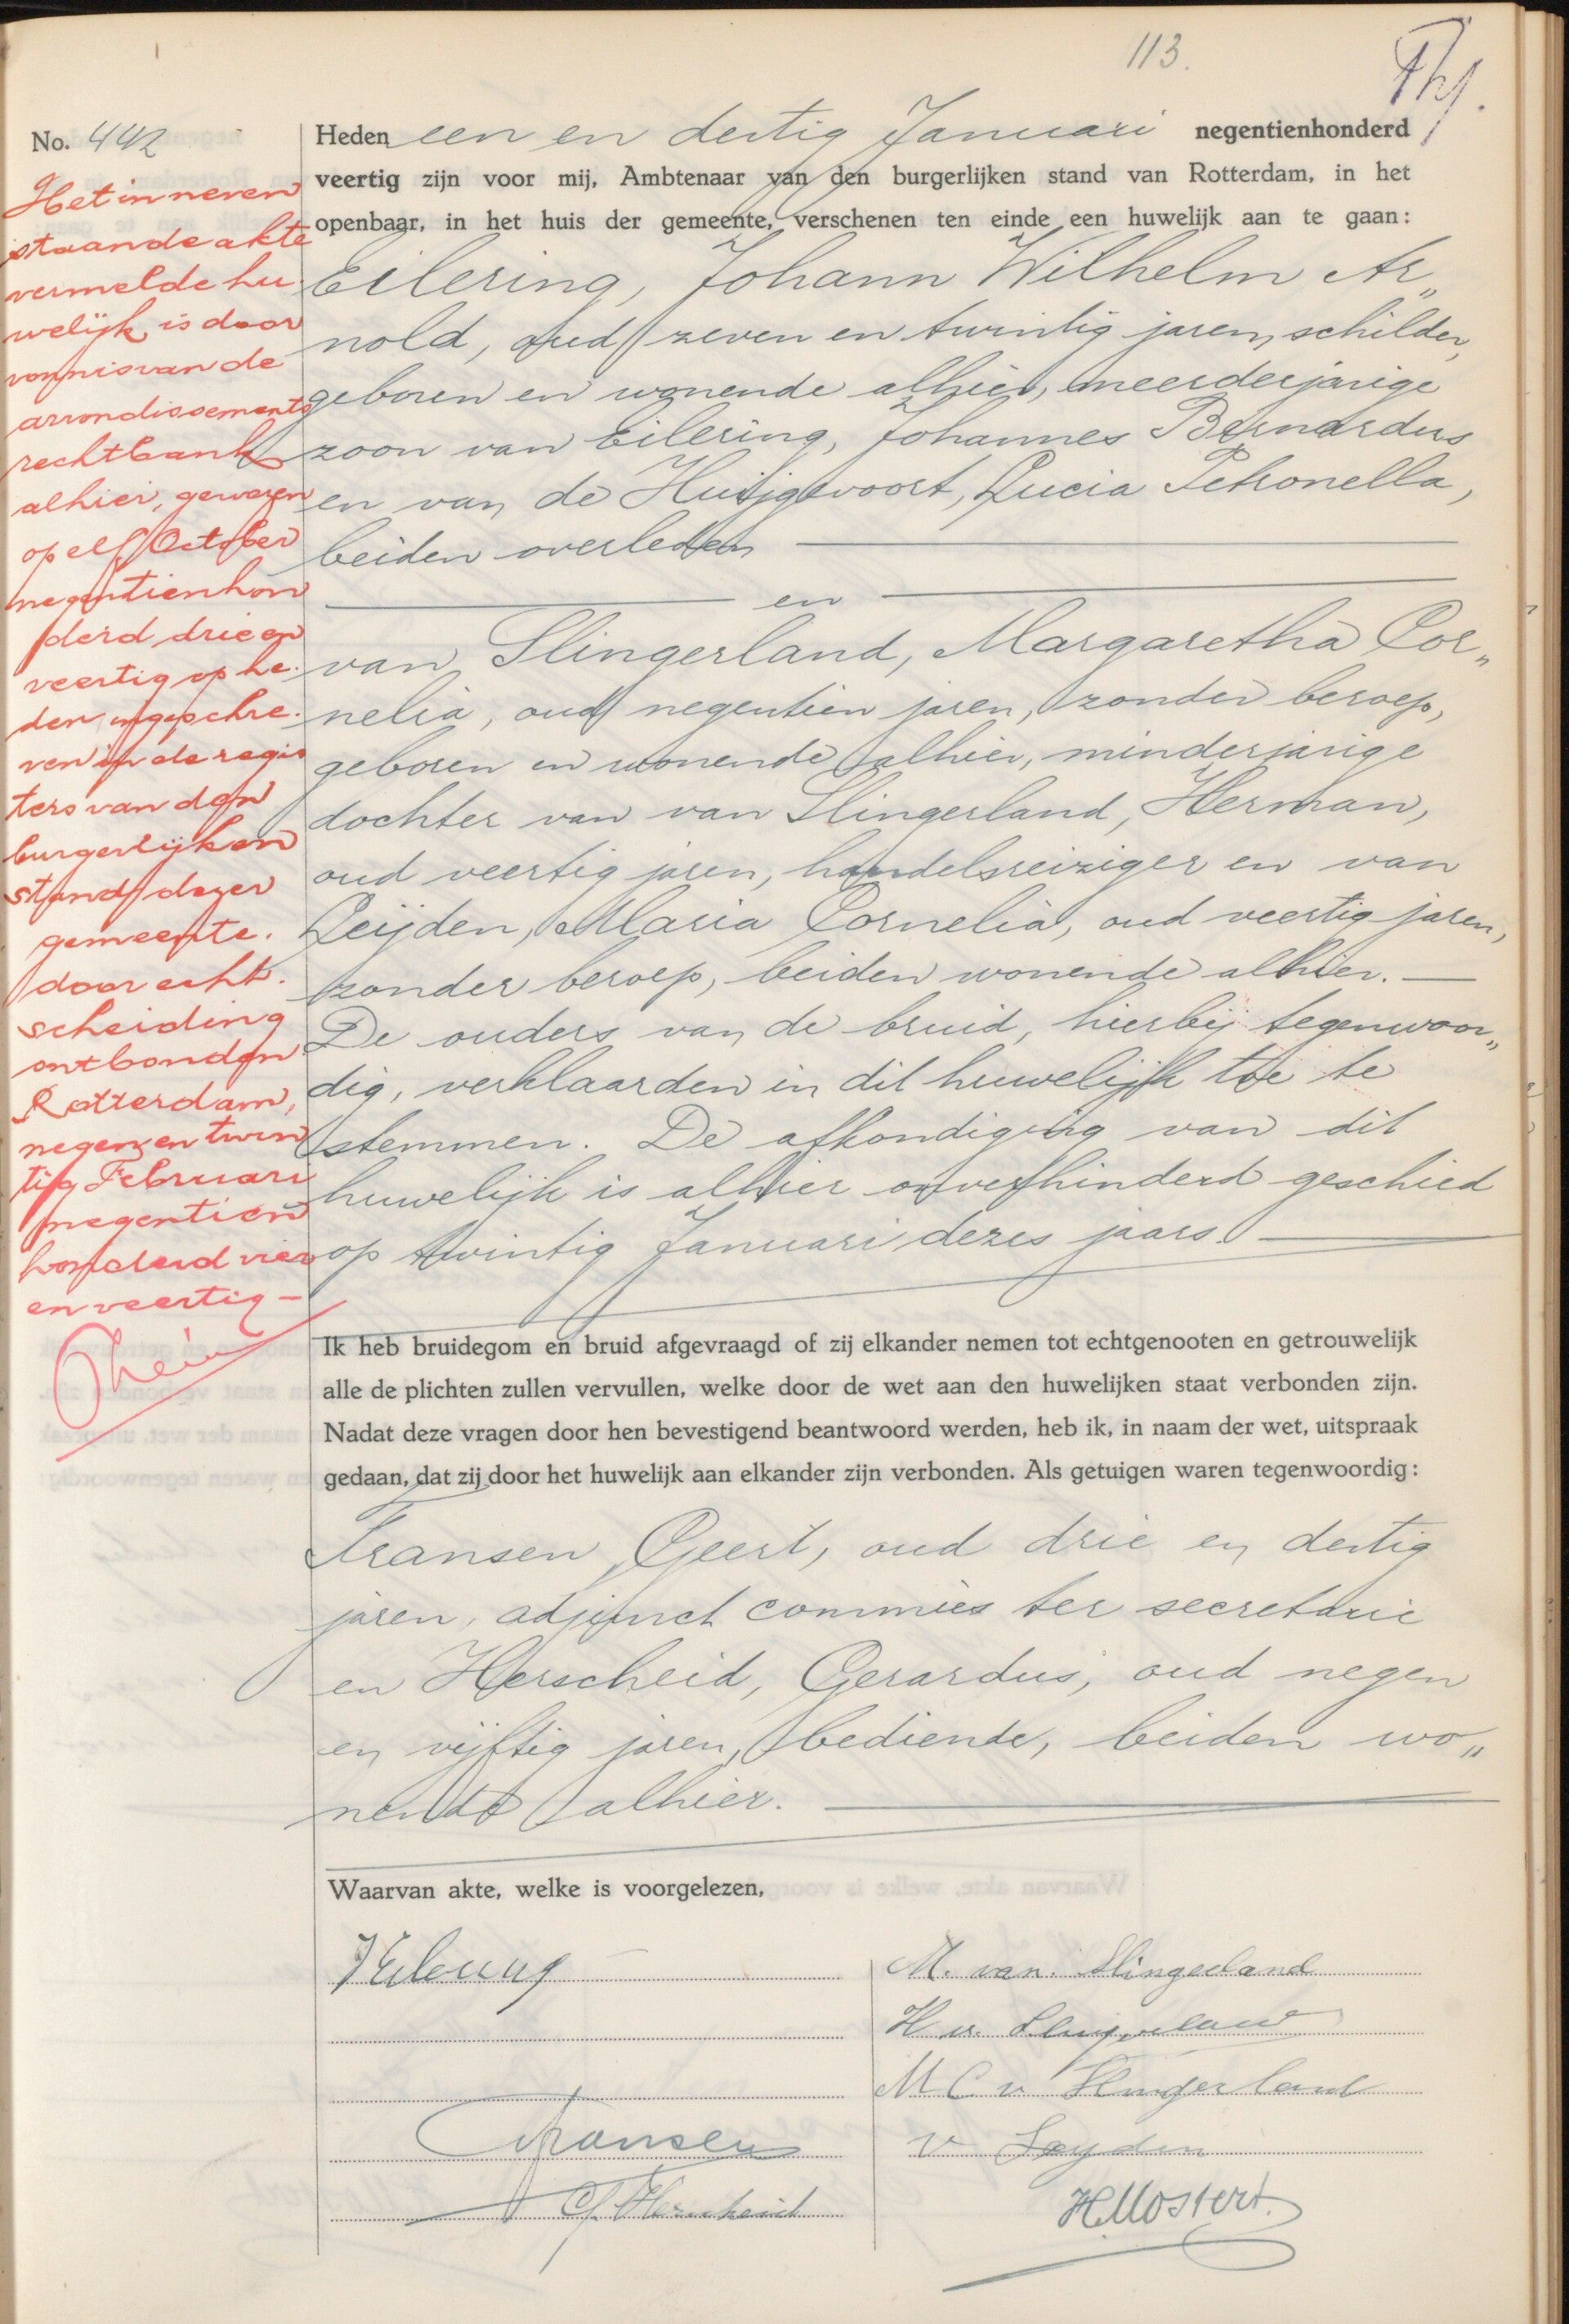 113.
No. 442
Heden een en dertig Januari negentienhonderd
veertig zijn voor mij, Ambtenaar van den burgerlijken stand van Rotterdam, in het
openbaar, in het huis der gemeente, verschenen ten einde een huwelijk aan te gaan:
Eilering, Johann Wilhelm Ar„
nold, oud zeven en twintig jaren, schilder,
geboren en wonende alhier, meerderjarige
zoon van Eilering, Johannes Bernardus
en van de Huijgevoort, Lucia Petronella,
beiden overleden
en
van Slingerland, Margaretha Cor„
nelia, oud negentien jaren, zonder beroep,
geboren en wonende alhier, minderjarige
dochter van van Slingerland, Herman,
oud veertig jaren, handelsreiziger en van
Leijden, Maria Cornelia, oud veertig jaren,
zonder beroep, beiden wonende alhier. —
De ouders van de bruid, hierbij tegenwoor„
dig, verklaarden in dit huwelijk toe te
stemmen. De afkondiging van dit
huwelijk is alhier onverhinderd geschied
op twintig Januari dezes jaars. —
Het in neven
staande akte
vermelde hu
welijk is door
vonnis van de
arrondissements
rechtbank
alhier, gewezen
op elf October
negentienhon
derd drie en
veertig op he.
den ingeschre.
ven in de regis
ters van den
burgerlijken
stand dezer
gemeente.
door echt.
scheiding
ontbonden
Rotterdam,
negen en twin
tig Februari
negentien
honderd vier
en veertig —
Ik heb bruidegom en bruid afgevraagd of zij elkander nemen tot echtgenooten en getrouwelijk
alle de plichten zullen vervullen, welke door de wet aan den huwelijken staat verbonden zijn.
Nadat deze vragen door hen bevestigend beantwoord werden, heb ik, in naam der wet, uitspraak
gedaan, dat zij door het huwelijk aan elkander zijn verbonden. Als getuigen waren tegenwoordig:
Fransen, Geert, oud drie en dertig
jaren, adjunct commies ter secretarie
en Herscheid, Gerardus, oud negen
en vijftig jaren, bediende, beiden wo„
nende alhier.
Waarvan akte, welke is voorgelezen,
JEilering
M. van Slingerland
H v. Slingerland
M C v Slingerland
v Leyden
GFransen
G. Herscheid
HMostert.